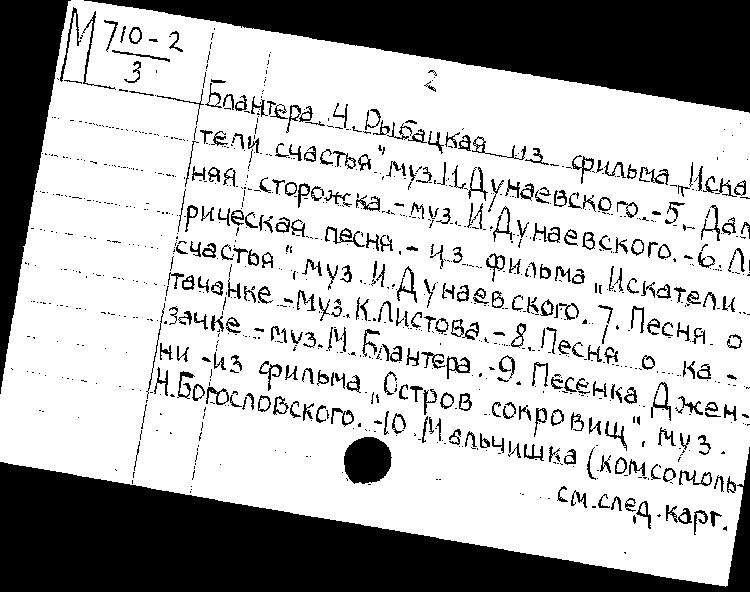 М 710-2
3
2
Блантера. 4. Рыбацкая из фильма „Иска
тели счастья", муз. И. Дунаевского. -5. Дал
няя сторожка. - муз. И. Дунаевского. -6. Ли
рическая песня. - из фильма „Искатели
счастья", муз. И. Дунаевского. 7. Песня о
тачанке - муз. К. Листова. -8. Песня о ка -
зачке - муз. М. Блантера. -9. Песенка Джен-
ни - из фильма „Остров сокровищ", муз.
Н. Богословского. -10. Мальчишка (комсомоль-
см. след. карт.